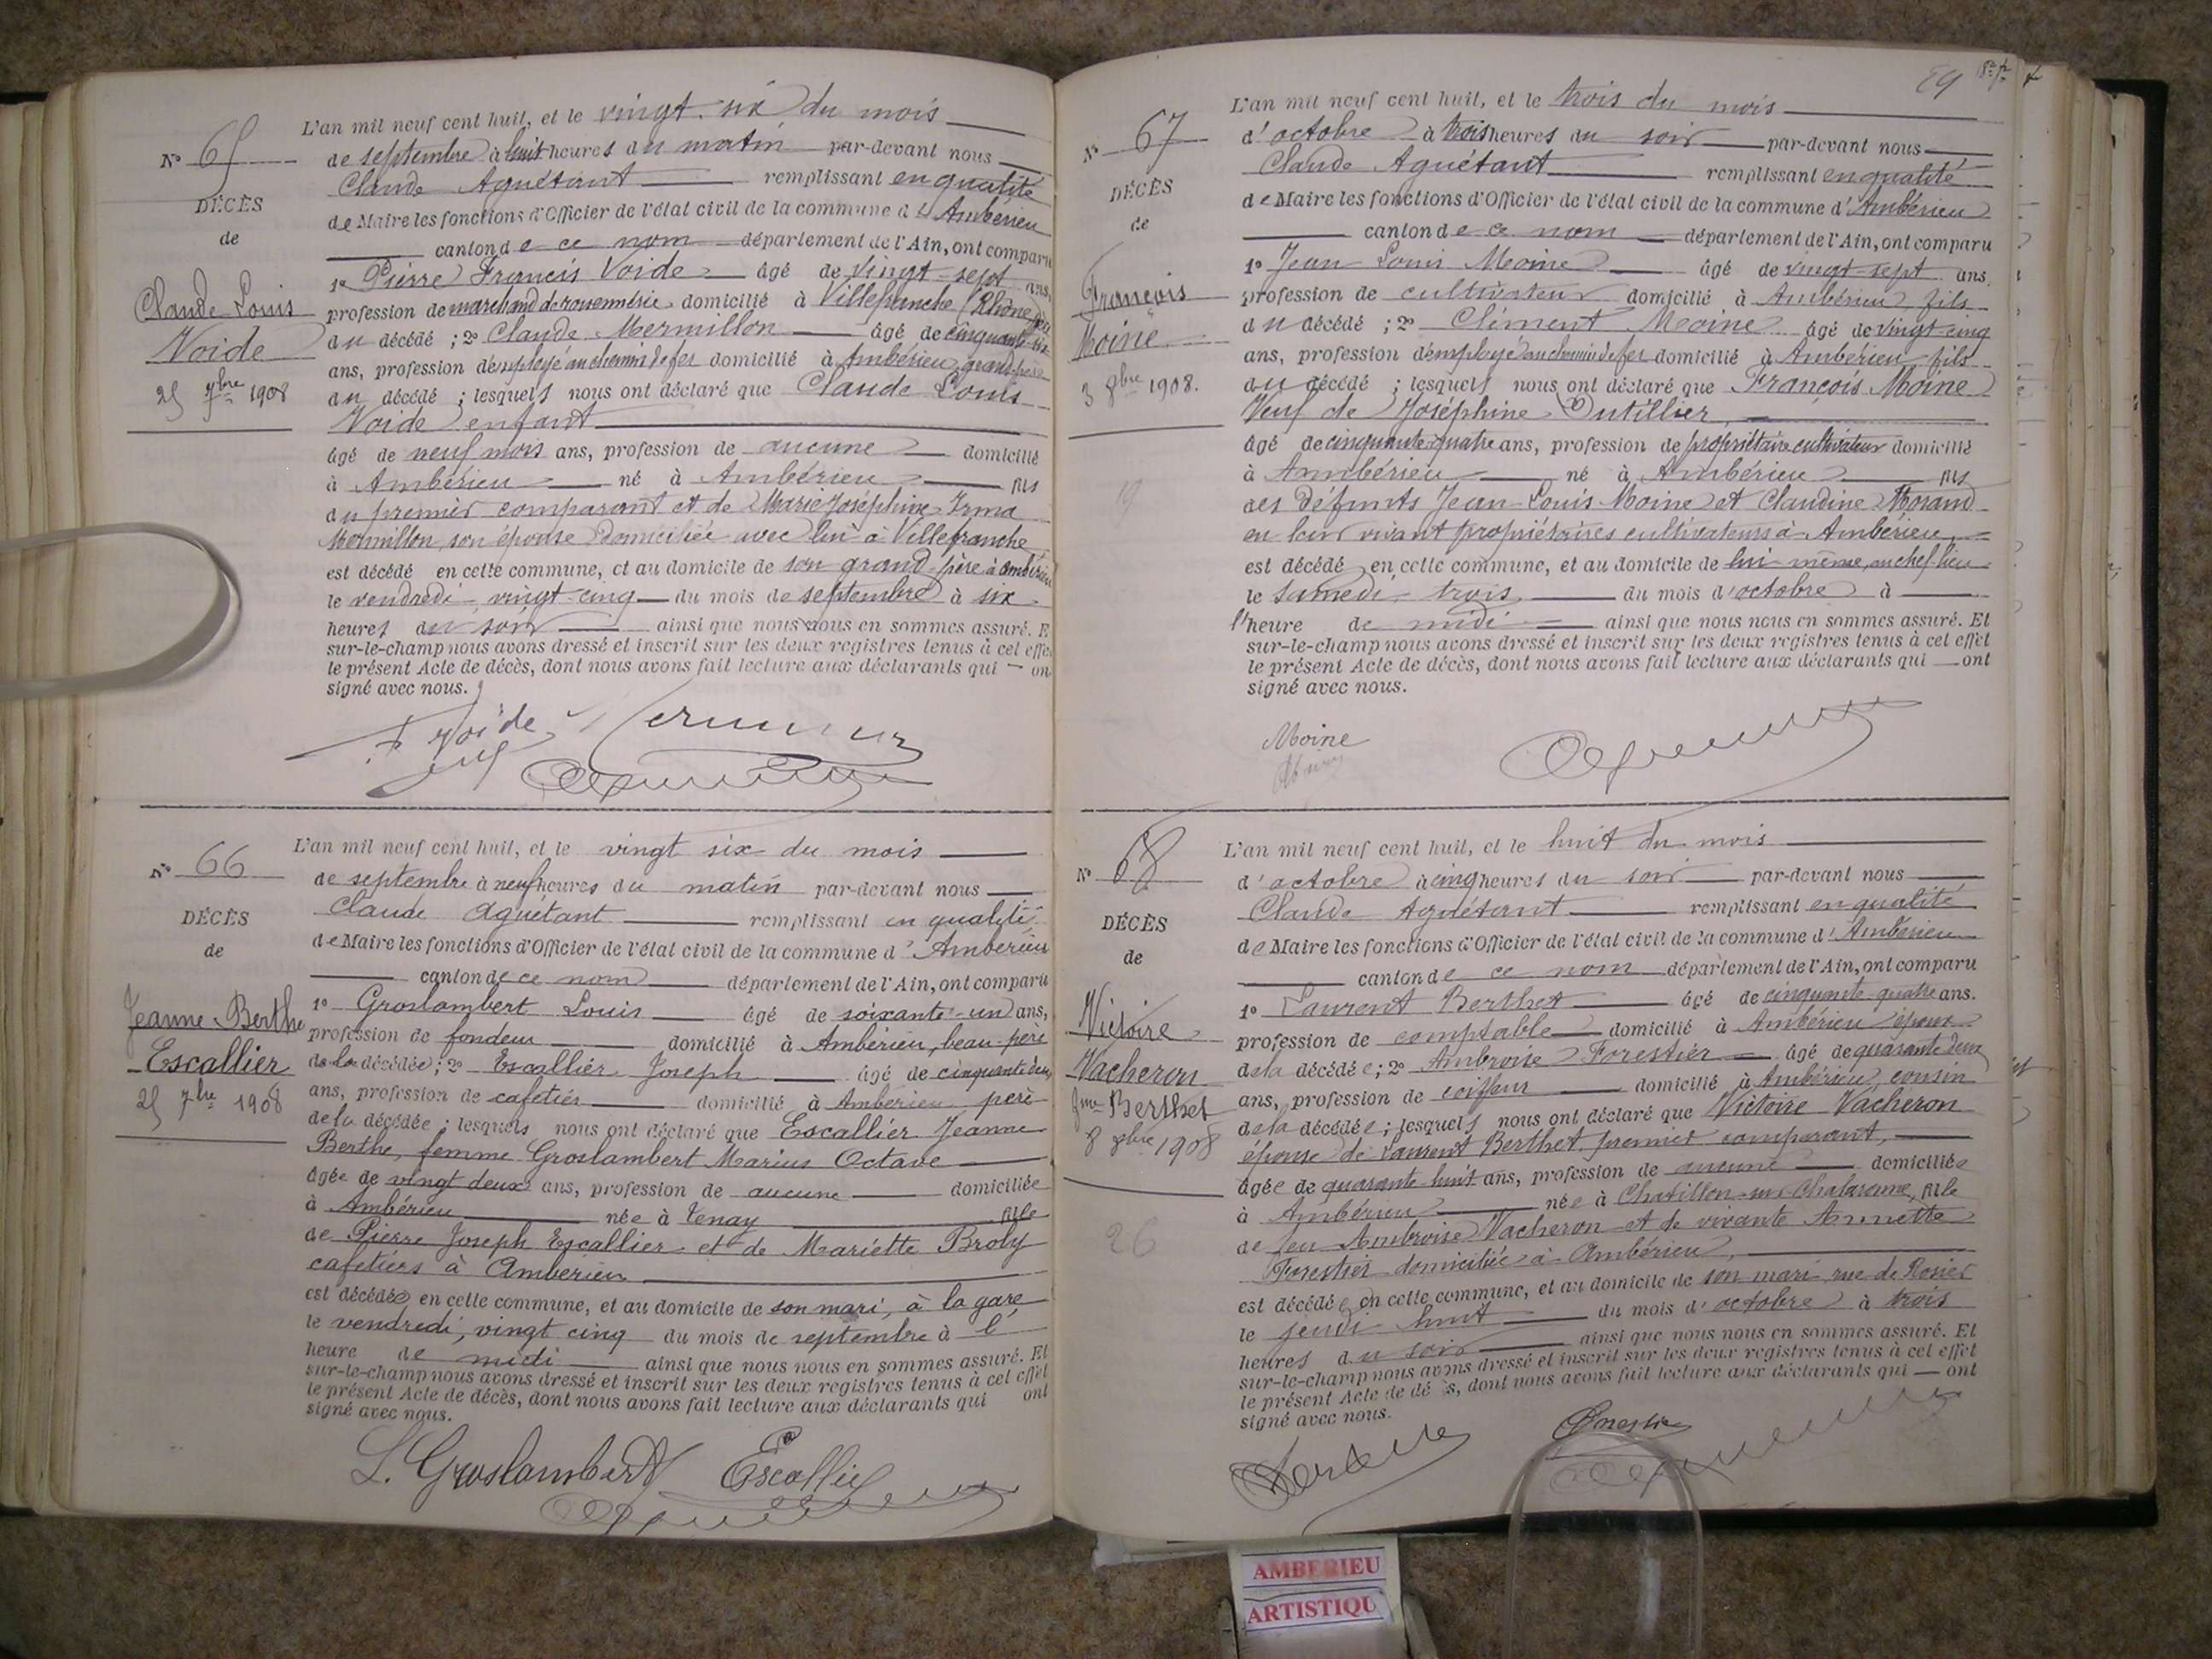 L'an mil neuf cent huit, et le vingt-six du mois
N° 65
de septembre à huit heures du matin par-devant nous
Claude Aguétant remplissant en qualité
DÉCÈS
de Maire les fonctions d'Officier de l'état civil de la commune d'Ambérieu
de
canton de ce nom département de l'Ain, ont comparu
1° Pierre Francis Voide âgé de vingt-sept ans,
Claude Louis
profession de marchand de rouennerie domicilié à Villefranche (Rhône)
Voide
du décédé ; 2° Claude Mermillon âgé de cinquante-six
ans, profession d'employé au chemin de fer domicilié à Ambérieu, grand-père
25 7bre 1908
du décédé ; lesquels nous ont déclaré que Claude Louis
Voide enfant
âgé de neuf mois ans, profession de aucune domicilié
à Ambérieu né à Ambérieu fils
du premier comparant et de Marie Joséphine Irma
Mermillon, son épouse domiciliée avec lui à Villefranche
est décédé en cette commune, et au domicile de son grand-père à Ambérieu
le vendredi, vingt-cinq du mois de septembre à six
heures du soir ainsi que nous nous en sommes assuré. E
sur-le-champ nous avons dressé et inscrit sur les deux registres tenus à cet effe
le présent Acte de décès, dont nous avons fait lecture aux déclarants qui on
signé avec nous.
F Voide
L'an mil neuf cent huit, et le vingt six du mois
N° 66
de septembre à neuf heures du matin par-devant nous
Claude Aguétant remplissant en qualité
DÉCÈS
de Maire les fonctions d'Officier de l'état civil de la commune d'Ambérieu
de
canton de ce nom département de l'Ain, ont comparu
1° Groslambert Louis âgé de soixante-un ans,
Jeanne Berthe
profession de fondeur domicilié à Ambérieu, beau-père
Escallier
de la décédée ; 2° Escallier Joseph âgé de cinquante deux
25 7bre 1908
ans, profession de cafetier domicilié à Ambérieu père
de la décédée ; lesquels nous ont déclaré que Escallier Jeanne
Berthe, femme Groslambert Marius Octave
âgée de vingt deux ans, profession de aucune domiciliée
à Ambérieu née à Tenay fille
de Pierre Joseph Escallier et de Mariette Broly
cafetiers à Ambérieu
est décédée en cette commune, et au domicile de son mari, à la gare
le vendredi, vingt cinq du mois de septembre à l'
heure de midi ainsi que nous nous en sommes assuré. Et
sur-le-champ nous avons dressé et inscrit sur les deux registres tenus à cet effet
le présent Acte de décès, dont nous avons fait lecture aux déclarants qui ont
signé avec nous.
L. Groslambert Escallier
L'an mil neuf cent huit, et le trois du mois
N° 67
d'octobre à trois heures du soir par-devant nous
Claude Aguétant remplissant en qualité
DÉCÈS
de Maire les fonctions d'Officier de l'état civil de la commune d'Ambérieu
de
canton de ce nom département de l'Ain, ont comparu
1° Jean Louis Moine âgé de vingt-sept ans.
François
profession de cultivateur domicilié à Ambérieu, fils
Moine
du décédé ; 2° Clément Moine âgé de vingt-cinq
ans, profession d'employé au chemin de fer domicilié à Ambérieu fils
3 8bre 1908.
du décédé ; lesquels nous ont déclaré que François Moine
Veuf de Joséphine Dutillier
âgé de cinquante-quatre ans, profession de propriétaire cultivateur domicilié
à Ambérieu né à Ambérieu fils
19
des défunts Jean-Louis Moine et Claudine Morand
en leur vivant propriétaires cultivateurs à Ambérieu,
est décédé en cette commune, et au domicile de lui-même, au chef-lieu
le samedi, trois du mois d'octobre à
l'heure de midi ainsi que nous nous en sommes assuré. Et
sur-le-champ nous avons dressé et inscrit sur les deux registres tenus à cet effet
le présent Acte de décès, dont nous avons fait lecture aux déclarants qui ont
signé avec nous.
Moine
L'an mil neuf cent huit, et le huit du mois
N° 68
d'octobre à cinq heures du soir par-devant nous
Claude Aguétant remplissant en qualité
DÉCÈS
de Maire les fonctions d'Officier de l'état civil de la commune d'Ambérieu
de
canton de ce nom département de l'Ain, ont comparu
1° Laurent Berthet âgé de cinquante-quatre ans.
Victoire
profession de comptable domicilié à Ambérieu époux
Vacheron
de la décédée ; 2° Ambroise Forestier âgé de quarante deux
fme Berthet
ans, profession de coiffeur domicilié à Ambérieu, cousin
8 8bre 1908
de la décédée ; lesquels nous ont déclaré que Victoire Vacheron
épouse de Laurent Berthet, premier comparant,
âgée de quarante-huit ans, profession de aucune domiciliée
à Ambérieu née à Chatillon-sur-Chalaronne, fille
26
de feu Ambroise Vacheron et de vivante Annette
Forestier domiciliée à Ambérieu,
est décédée en cette commune, et au domicile de son mari rue de Rosier
le jeudi huit du mois d'octobre à trois
heures du soir ainsi que nous nous en sommes assuré. Et
sur-le-champ nous avons dressé et inscrit sur les deux registres tenus à cet effet
le présent Acte de dé s, dont nous avons fait lecture aux déclarants qui ont
signé avec nous.
AMBERIEU
ARTISTIQU